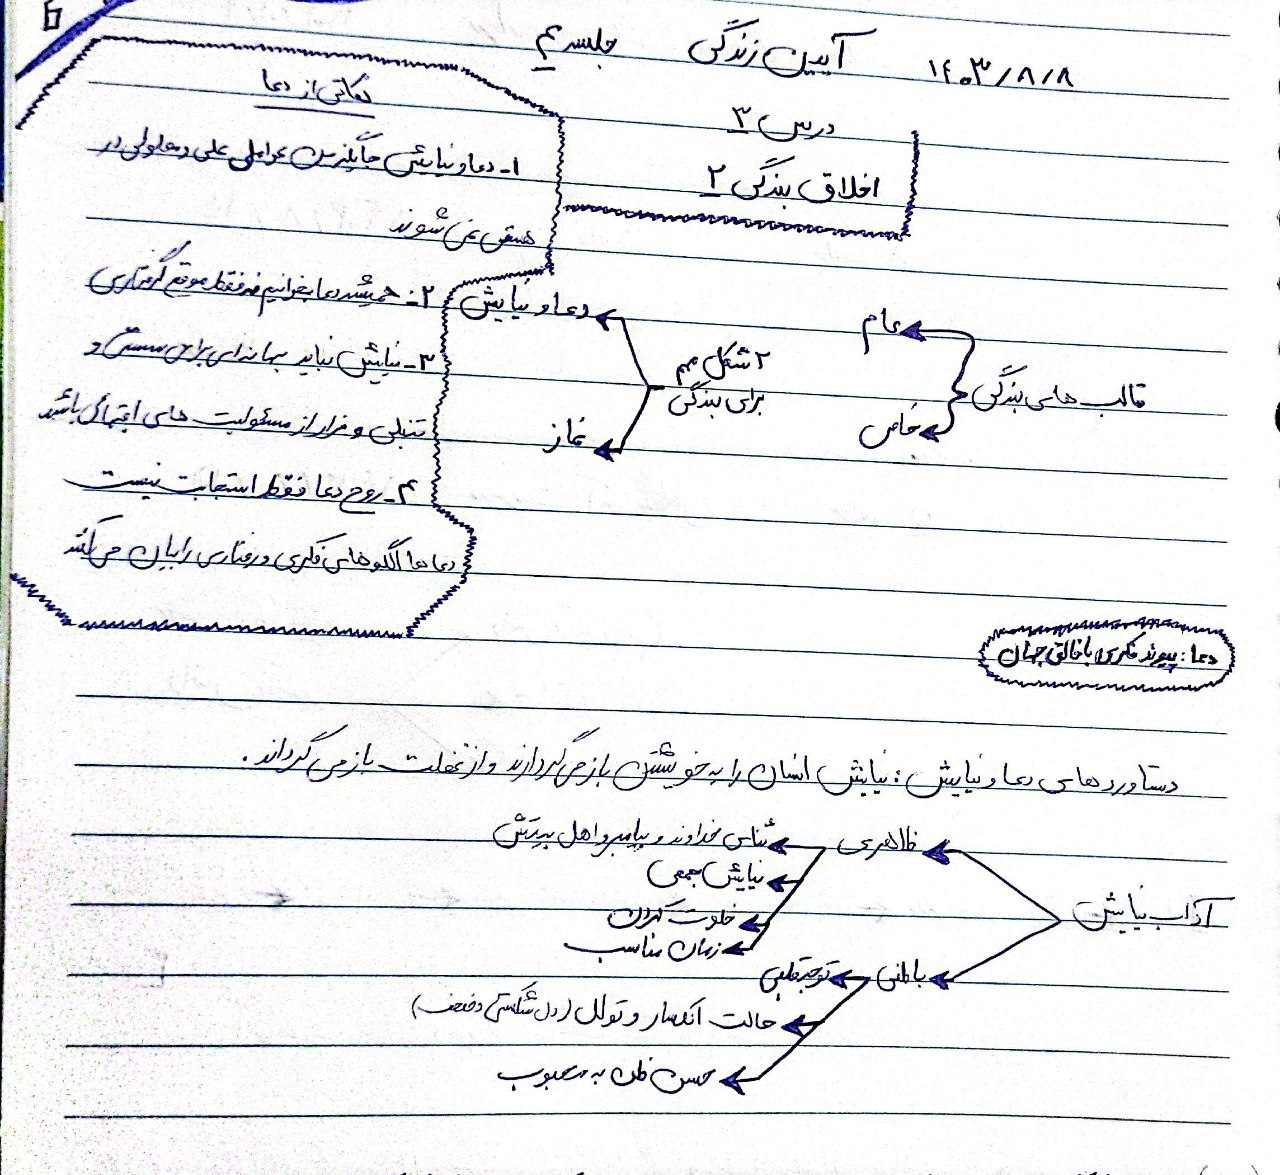 ۱۴۰۳/۸/۸
آیین زندگی جلسه ۴
درس ۳
اخلاق بندگی ۲
نکاتی از دعا
۱- دعا و نیایش جایگزین عوامل علی و معلولی در
هستی نمی شوند
۲- همیشه دعا بخوانیم نه فقط موقع گرفتاری
۳- نیایش نباید بهانه ای برای سستی و
تنبلی و فرار از مسئولیت های اجتماعی باشد
۴- روح دعا فقط استجابت نیست
دعاها الگوهای فکری و رفتاری را بیان می کند
قالب های بندگی
عام
خاص
۲ شکل مهم
برای بندگی
دعا و نیایش
نماز
دعا: پیوند فکری با خالق جهان
دستاوردهای دعا و نیایش: نیایش انسان را به خویشتن باز می گرداند و از غفلت باز می گرداند.
آداب نیایش
ظاهری
ثنای خداوند و پیامبر و اهل بیتش
نیایش جمعی
خلوت کردن
زمان مناسب
باطنی
توجه قلبی
حالت انکسار و تذلل (دل شکستگی و ضعف)
حسن ظن به محبوب